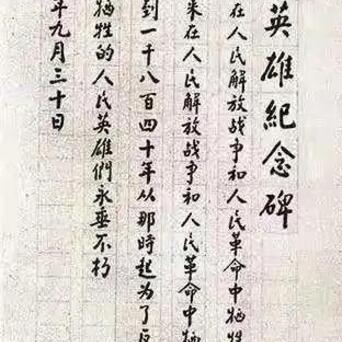 英雄紀念碑
在人民解放战争和人民革命中牺牲
来在人民解放战争和人民革命中牺
到一千八百四十年从那時起为了反
牺牲的人民英雄們永垂不朽
年九月三十日